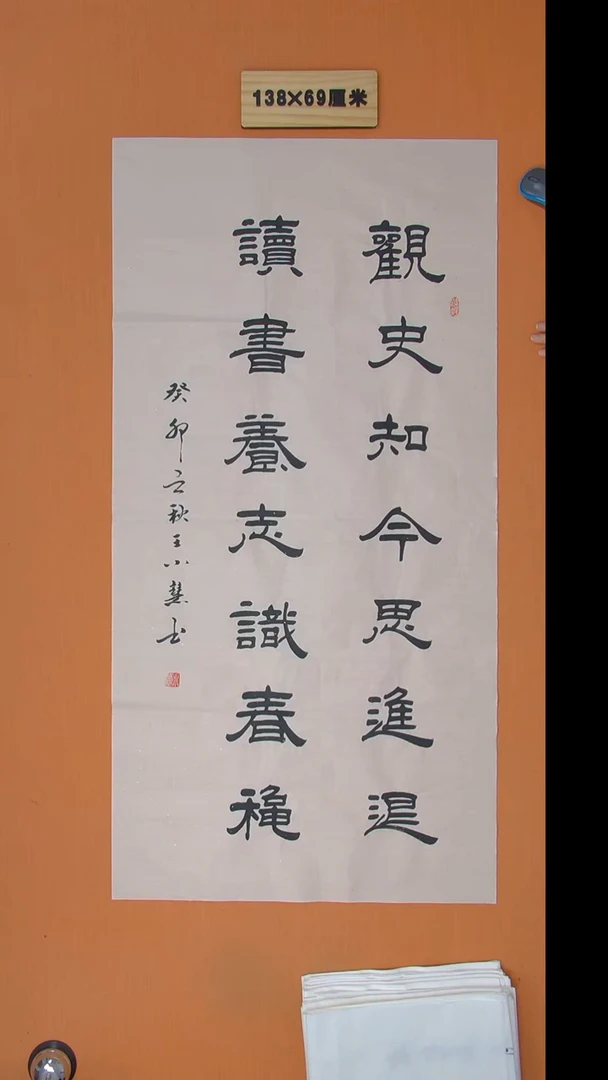 138×69厘米
觀史知今思進退
讀書養志識春龝
癸卯立秋王小慧書